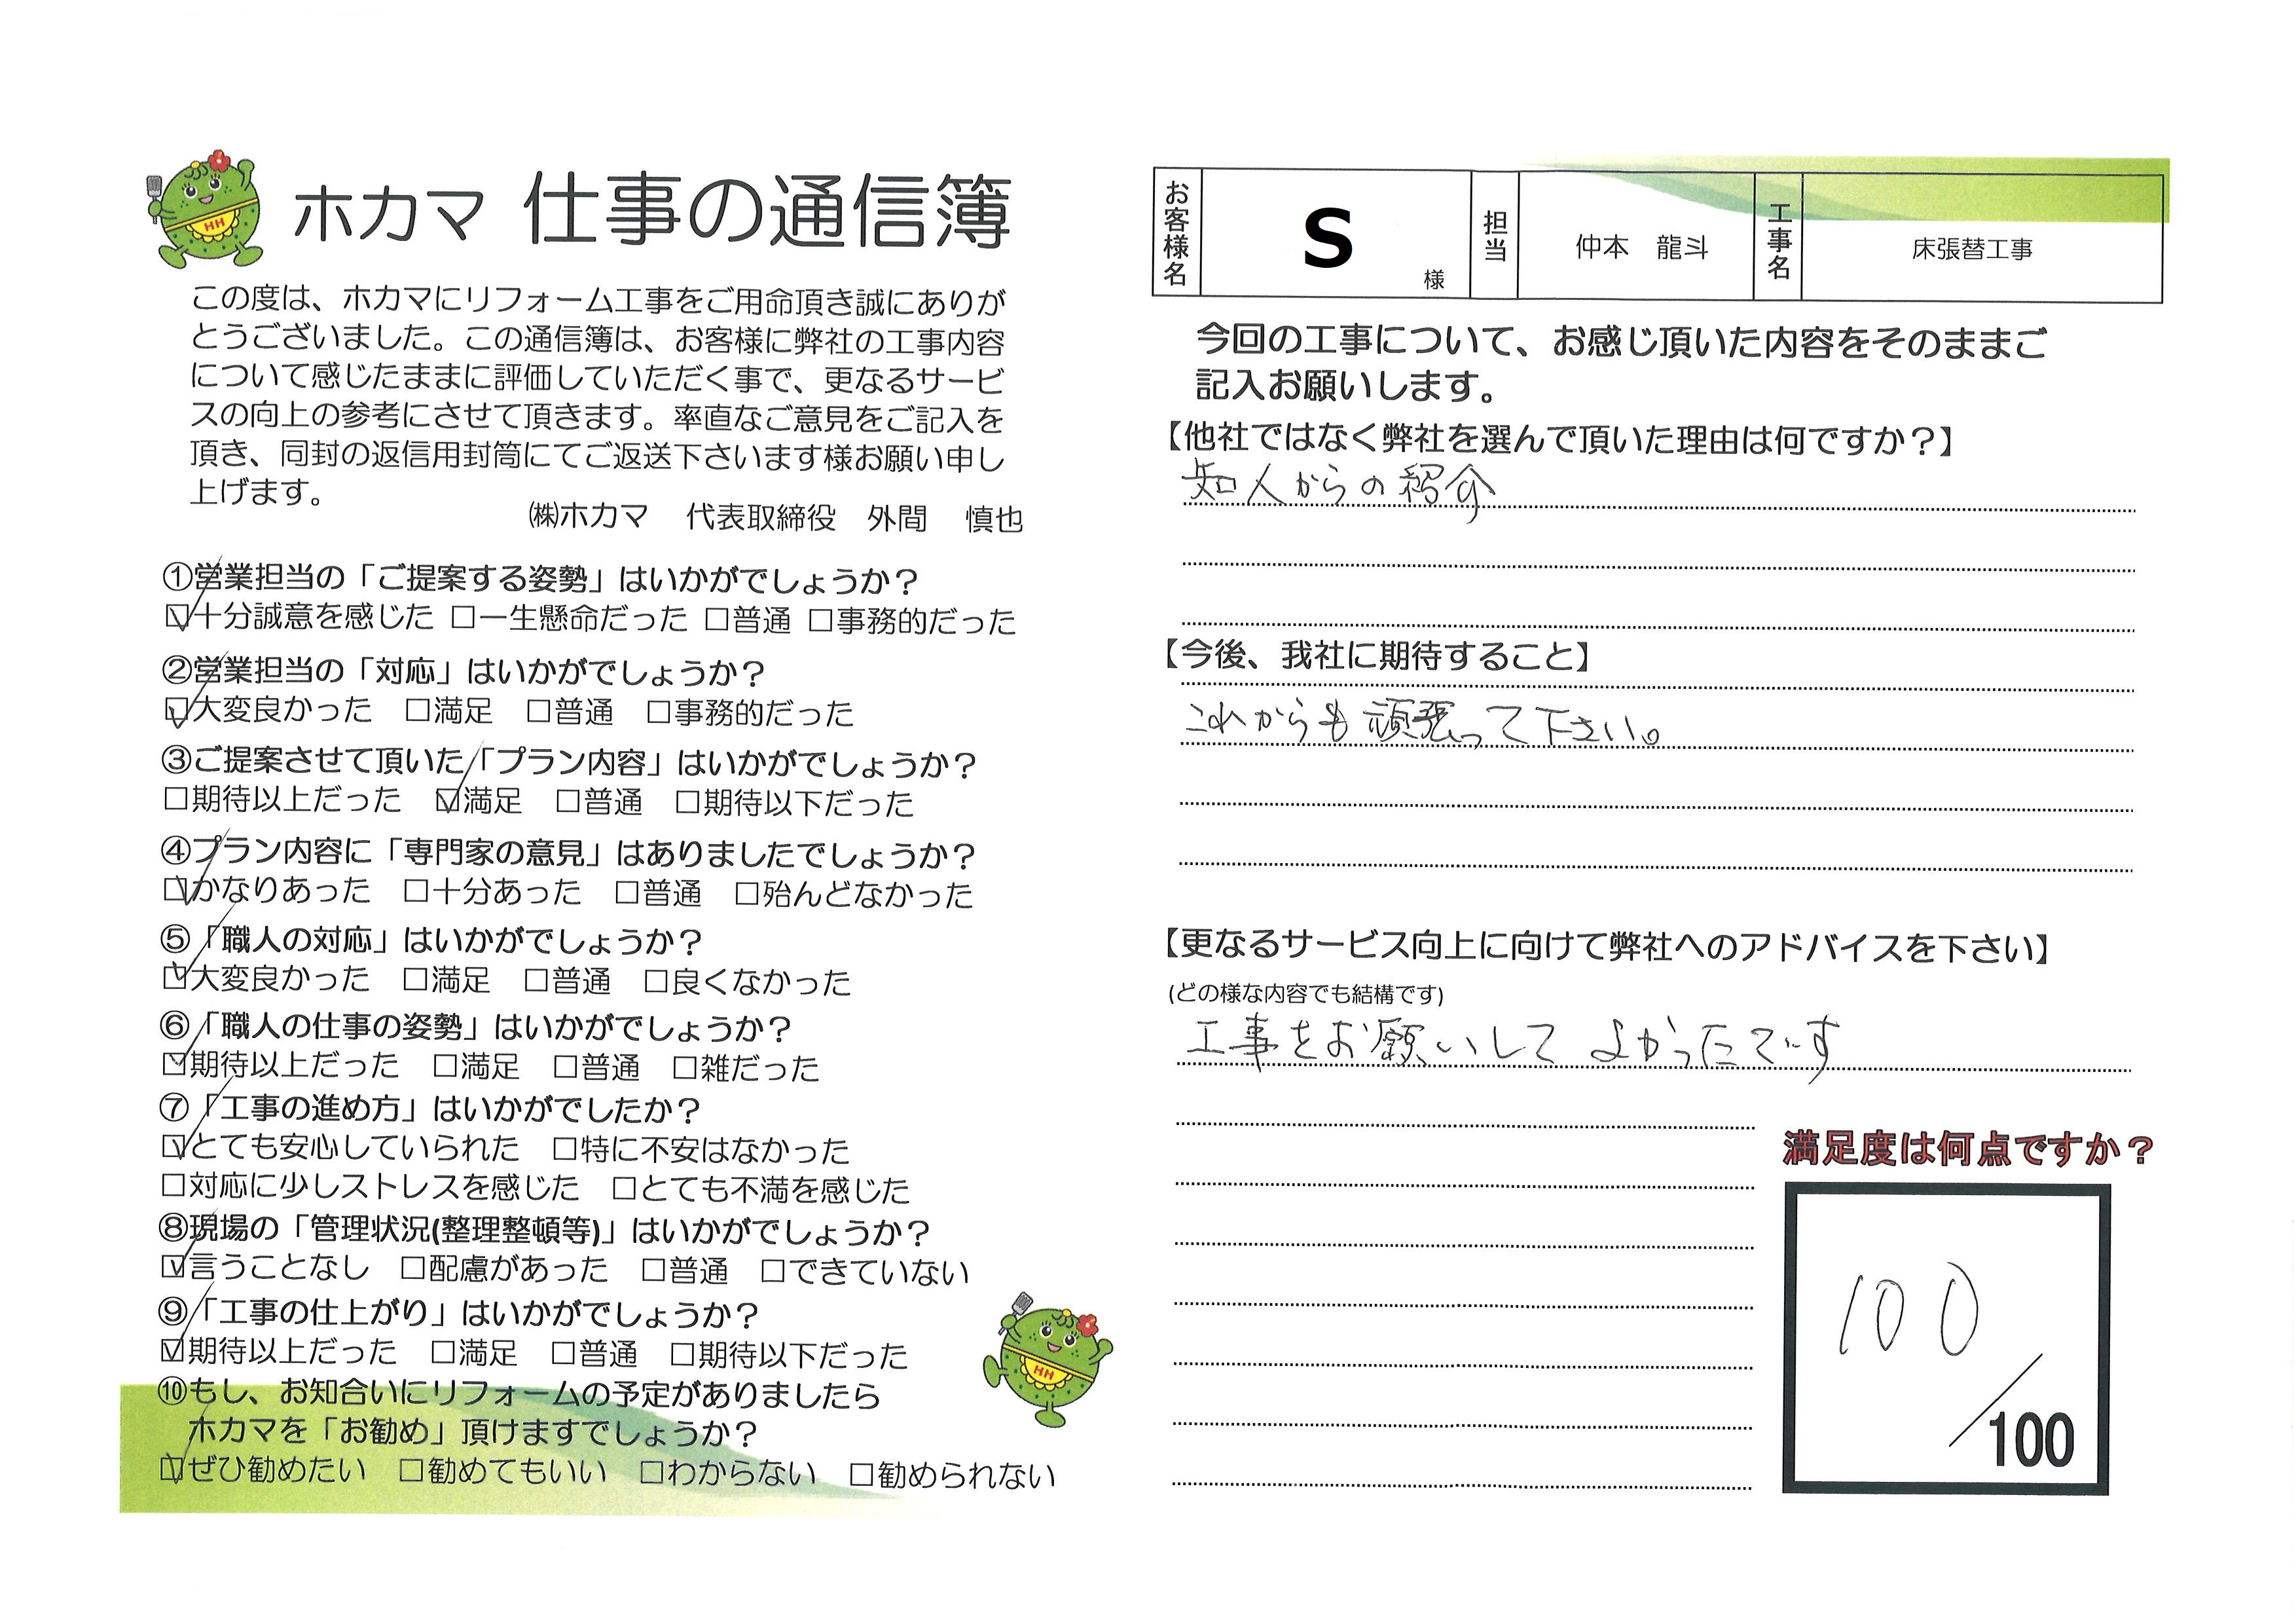 ホカマ 仕事の通信簿
この度は、ホカマにリフォーム工事をご用命頂き誠にありが
とうございました。この通信簿は、お客様に弊社の工事内容
について感じたままに評価していただく事で、更なるサービ
スの向上の参考にさせて頂きます。率直なご意見をご記入を
頂き、同封の返信用封筒にてご返送下さいます様お願い申し
上げます。
㈱ホカマ 代表取締役 外間 慎也
①営業担当の「ご提案する姿勢」はいかがでしょうか？
☑十分誠意を感じた □一生懸命だった □普通 □事務的だった
②営業担当の「対応」はいかがでしょうか？
☑大変良かった □満足 □普通 □事務的だった
③ご提案させて頂いた「プラン内容」はいかがでしょうか？
□期待以上だった ☑満足 □普通 □期待以下だった
④プラン内容に「専門家の意見」はありましたでしょうか？
☑かなりあった □十分あった □普通 □殆んどなかった
⑤「職人の対応」はいかがでしょうか？
☑大変良かった □満足 □普通 □良くなかった
⑥「職人の仕事の姿勢」はいかがでしょうか？
☑期待以上だった □満足 □普通 □雑だった
⑦「工事の進め方」はいかがでしたか？
☑とても安心していられた □特に不安はなかった
□対応に少しストレスを感じた □とても不満を感じた
⑧現場の「管理状況(整理整頓等)」はいかがでしょうか？
☑言うことなし □配慮があった □普通 □できていない
⑨「工事の仕上がり」はいかがでしょうか？
☑期待以上だった □満足 □普通 □期待以下だった
⑩もし、お知合いにリフォームの予定がありましたら
ホカマを「お勧め」頂けますでしょうか？
☑ぜひ勧めたい □勧めてもいい □わからない □勧められない
HH
HH
お客様名 S 様 担当 仲本 龍斗 工事名 床張替工事
今回の工事について、お感じ頂いた内容をそのままご
記入お願いします。
【他社ではなく弊社を選んで頂いた理由は何ですか？】
知人からの紹介
【今後、我社に期待すること】
これからも頑張って下さい。
【更なるサービス向上に向けて弊社へのアドバイスを下さい】
(どの様な内容でも結構です)
工事をお願いして よかったです
満足度は何点ですか？
100
/100